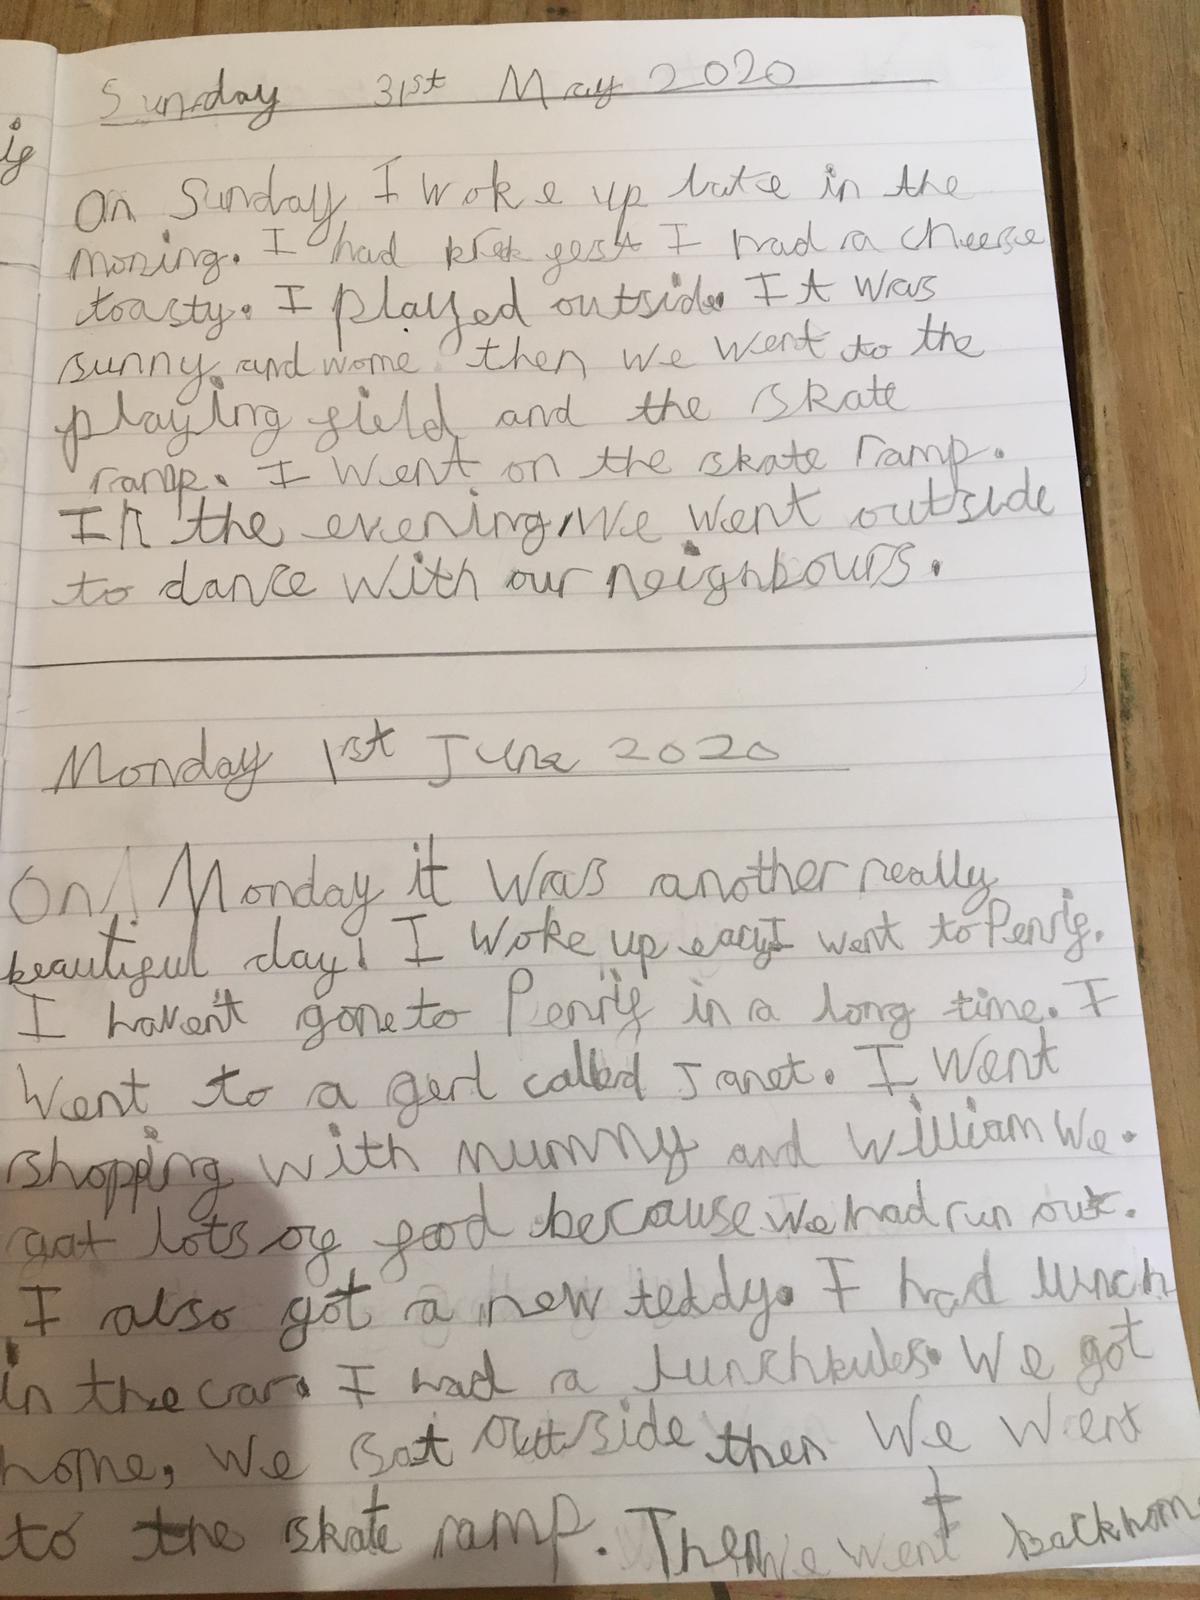 ig
Sunday 31st May 2020
On Sunday I woke up late in the
moring. I had brek fest I had a cheese
toasty. I played outside. It was
sunny and wome then we went to the
playing field and the skate
ramp. I went on the skate ramp.
In the evening, We went outside
to dance with our neighbours.
Monday 1st June 2020
On Monday it was another really
beautiful day! I woke up I went to Penrig.
I haven't gone to Penrig in a long time. I
went to a gerl called Janet. I went
shopping with mummy and William We.
got lots of food because we had run out.
I also got a new teddy. I had lunch
in the car. I had a We got
home, we sat outside then we went
to the skate ramp. Then we went back hom